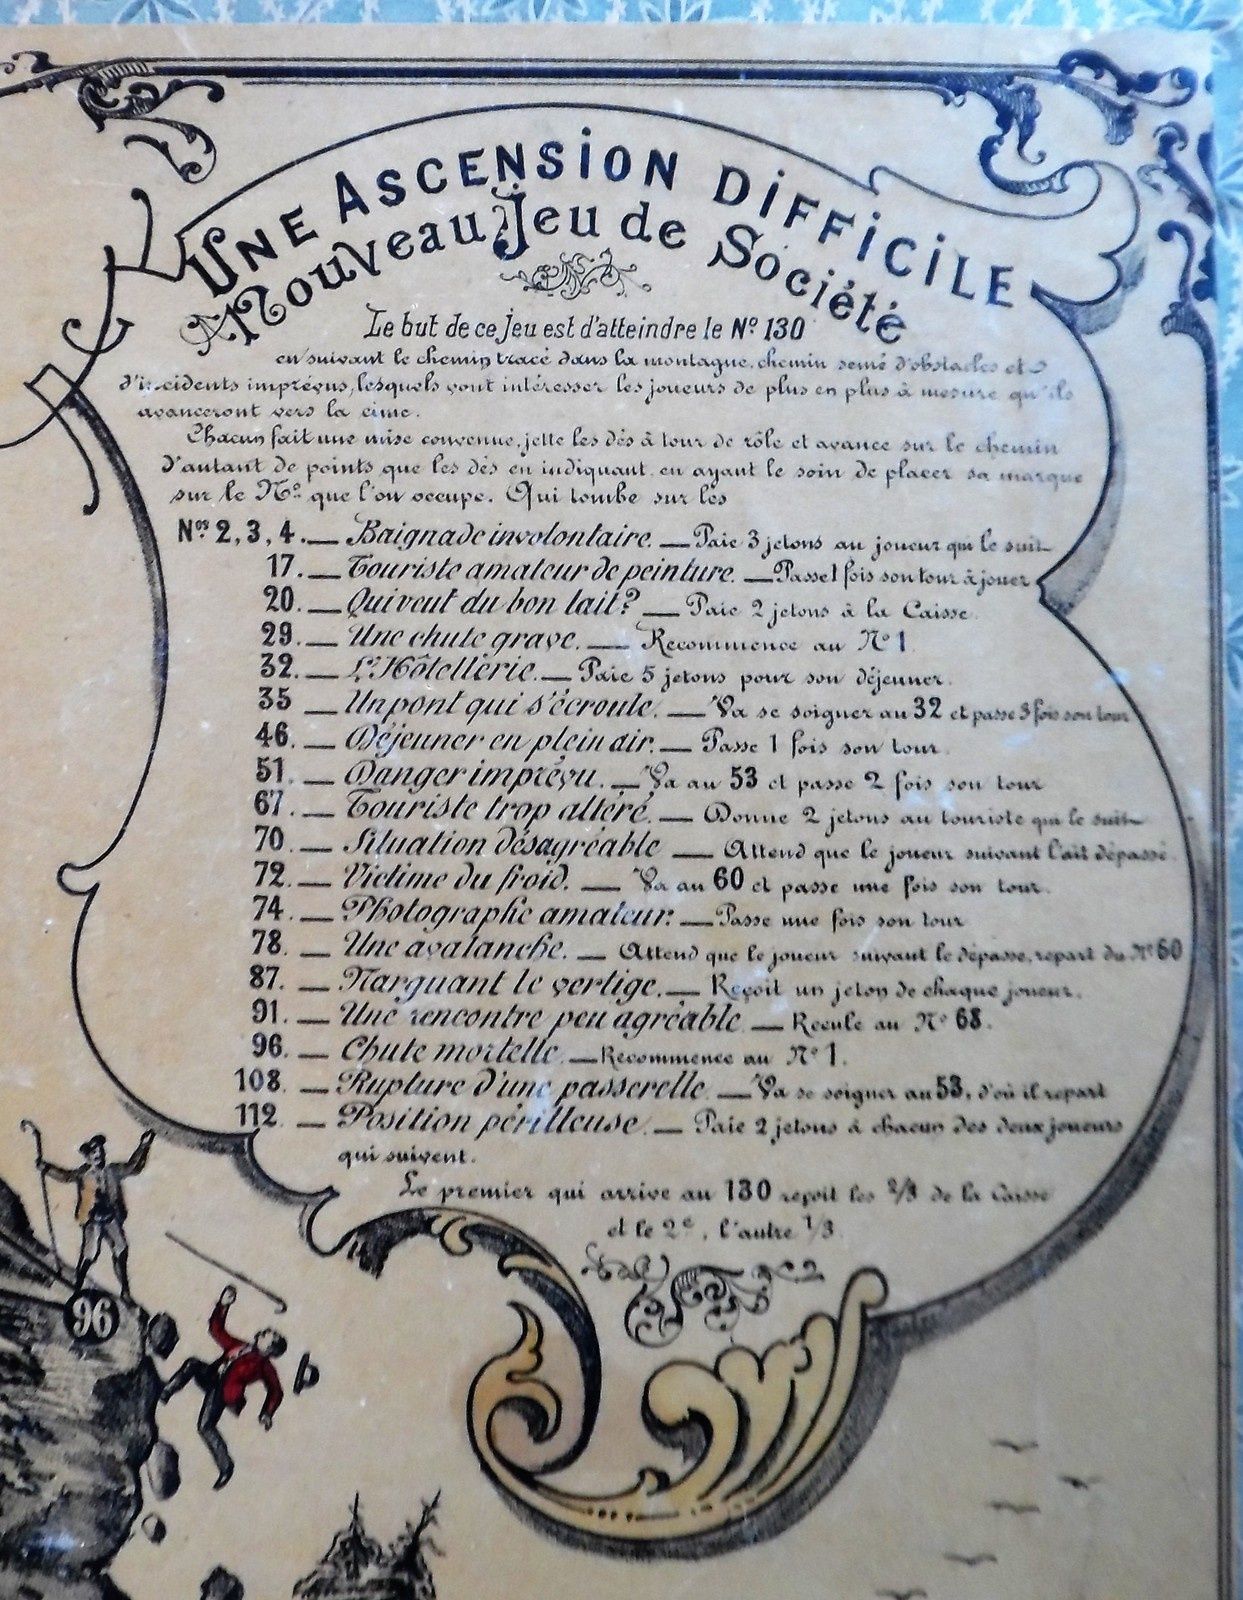 UNE ASCENSION DIFFICILE
Nouveau Jeu de Société
Le but de ce Jeu est d'atteindre le Nº 130
en suivant le chemin tracé dans la montagne, chemin semé d'obstacles et
d'incidents imprévus, lesquels vont intéresser les joueurs de plus en plus à mesure qu'ils
avanceront vers la cime.
Chacun fait une mise convenue, jette les dés à tour de rôle et avance sur le chemin
d'autant de points que les dés en indiquant, en ayant le soin de placer sa marque
sur le Nº que l'on occupe. Qui tombe sur les
Nos 2, 3, 4. — Baignade involontaire. — Paie 3 jetons au joueur qui le suit
17. — Touriste amateur de peinture. — Passe 1 fois son tour à jouer
20. — Qui veut du bon lait? — Paie 2 jetons à la Caisse.
29. — Une chute grave. — Recommence au Nº 1
32. — L'Hôtellerie. — Paie 5 jetons pour son déjeuner.
35 — Un pont qui s'écroule. — Va se soigner au 32 et passe 3 fois son tour
46. — Déjeuner en plein air. — Passe 1 fois son tour.
51. — Danger imprévu. — Va au 53 et passe 2 fois son tour
67. — Touriste trop altéré. — Donne 2 jetons au touriste qui le suit
70. — Situation désagréable — Attend que le joueur suivant l'ait dépassé.
72. — Victime du froid. — Va au 60 et passe une fois son tour.
74. — Photographe amateur. — Passe une fois son tour
78. — Une avalanche. — Attend que le joueur suivant le dépasse, repart du Nº 60
87. — Narguant le vertige. — Reçoit un jeton de chaque joueur.
91. — Une rencontre peu agréable — Recule au Nº 68.
96. — Chute mortelle. — Recommence au Nº 1.
108. — Rupture d'une passerelle. — Va se soigner au 53, d'où il repart
112. — Position périlleuse. — Paie 2 jetons à chacun des deux joueurs
qui suivent.
Le premier qui arrive au 130 reçoit les 2/3 de la Caisse
et le 2e, l'autre 1/3.
96